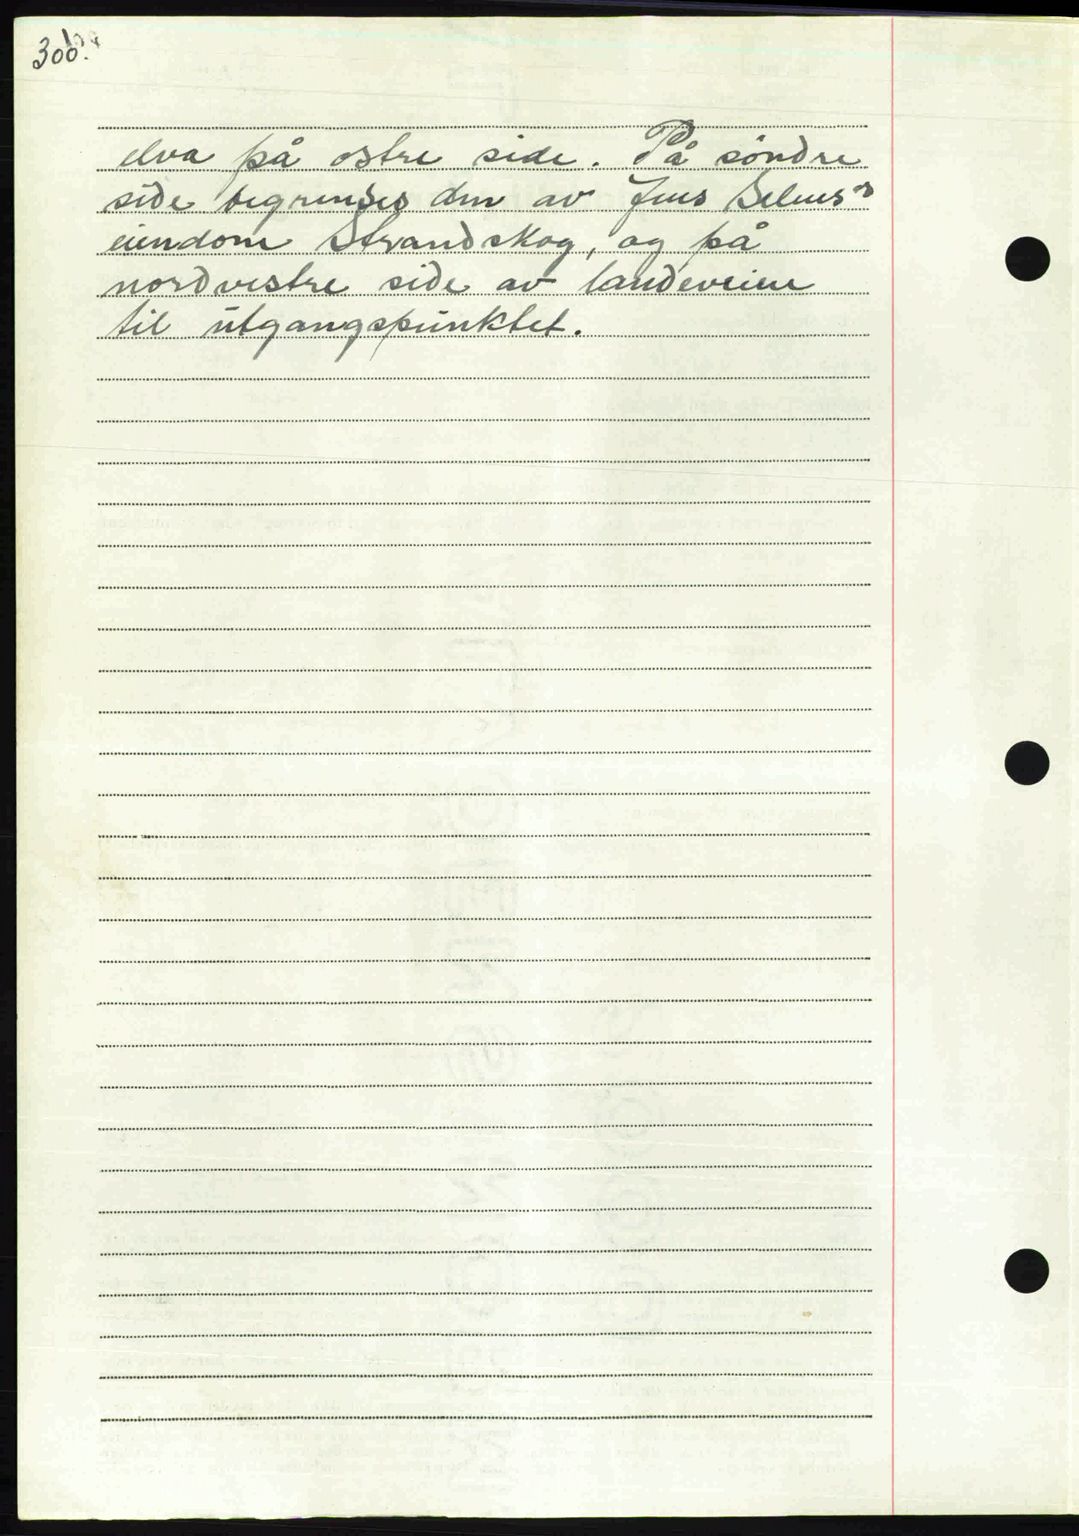 300.
elva på østre side. På söndre
side begrenses den av Jens Selnes's
eiendom Strandskog, og på
nordvestre side av landeveien
til utgangspunktet.